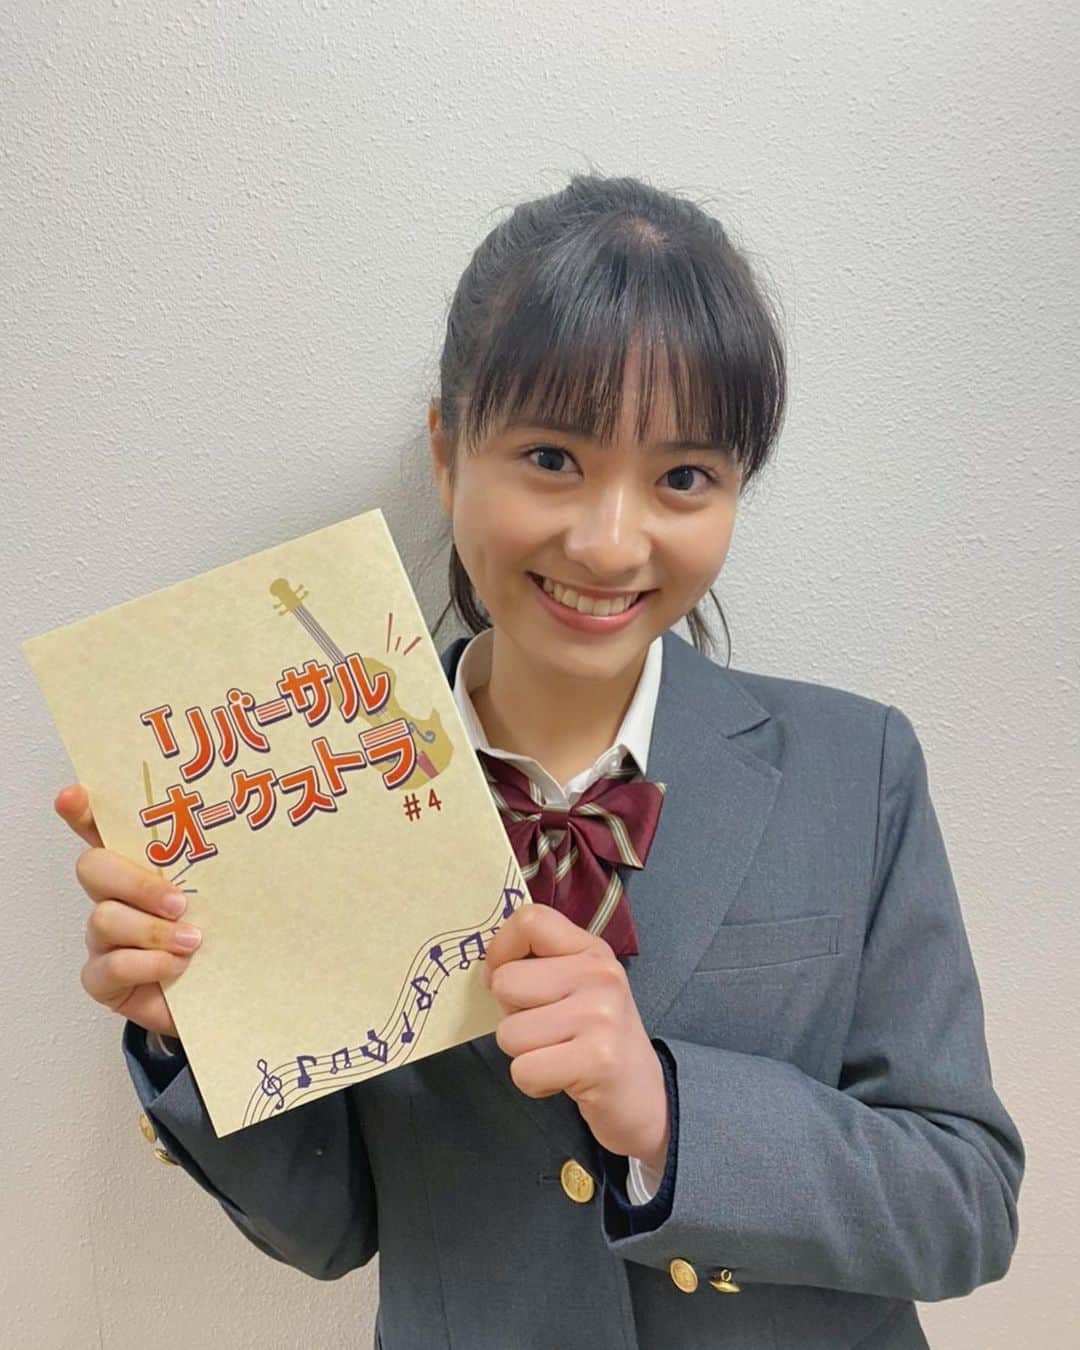 リバーサル
オーケストラ
#4